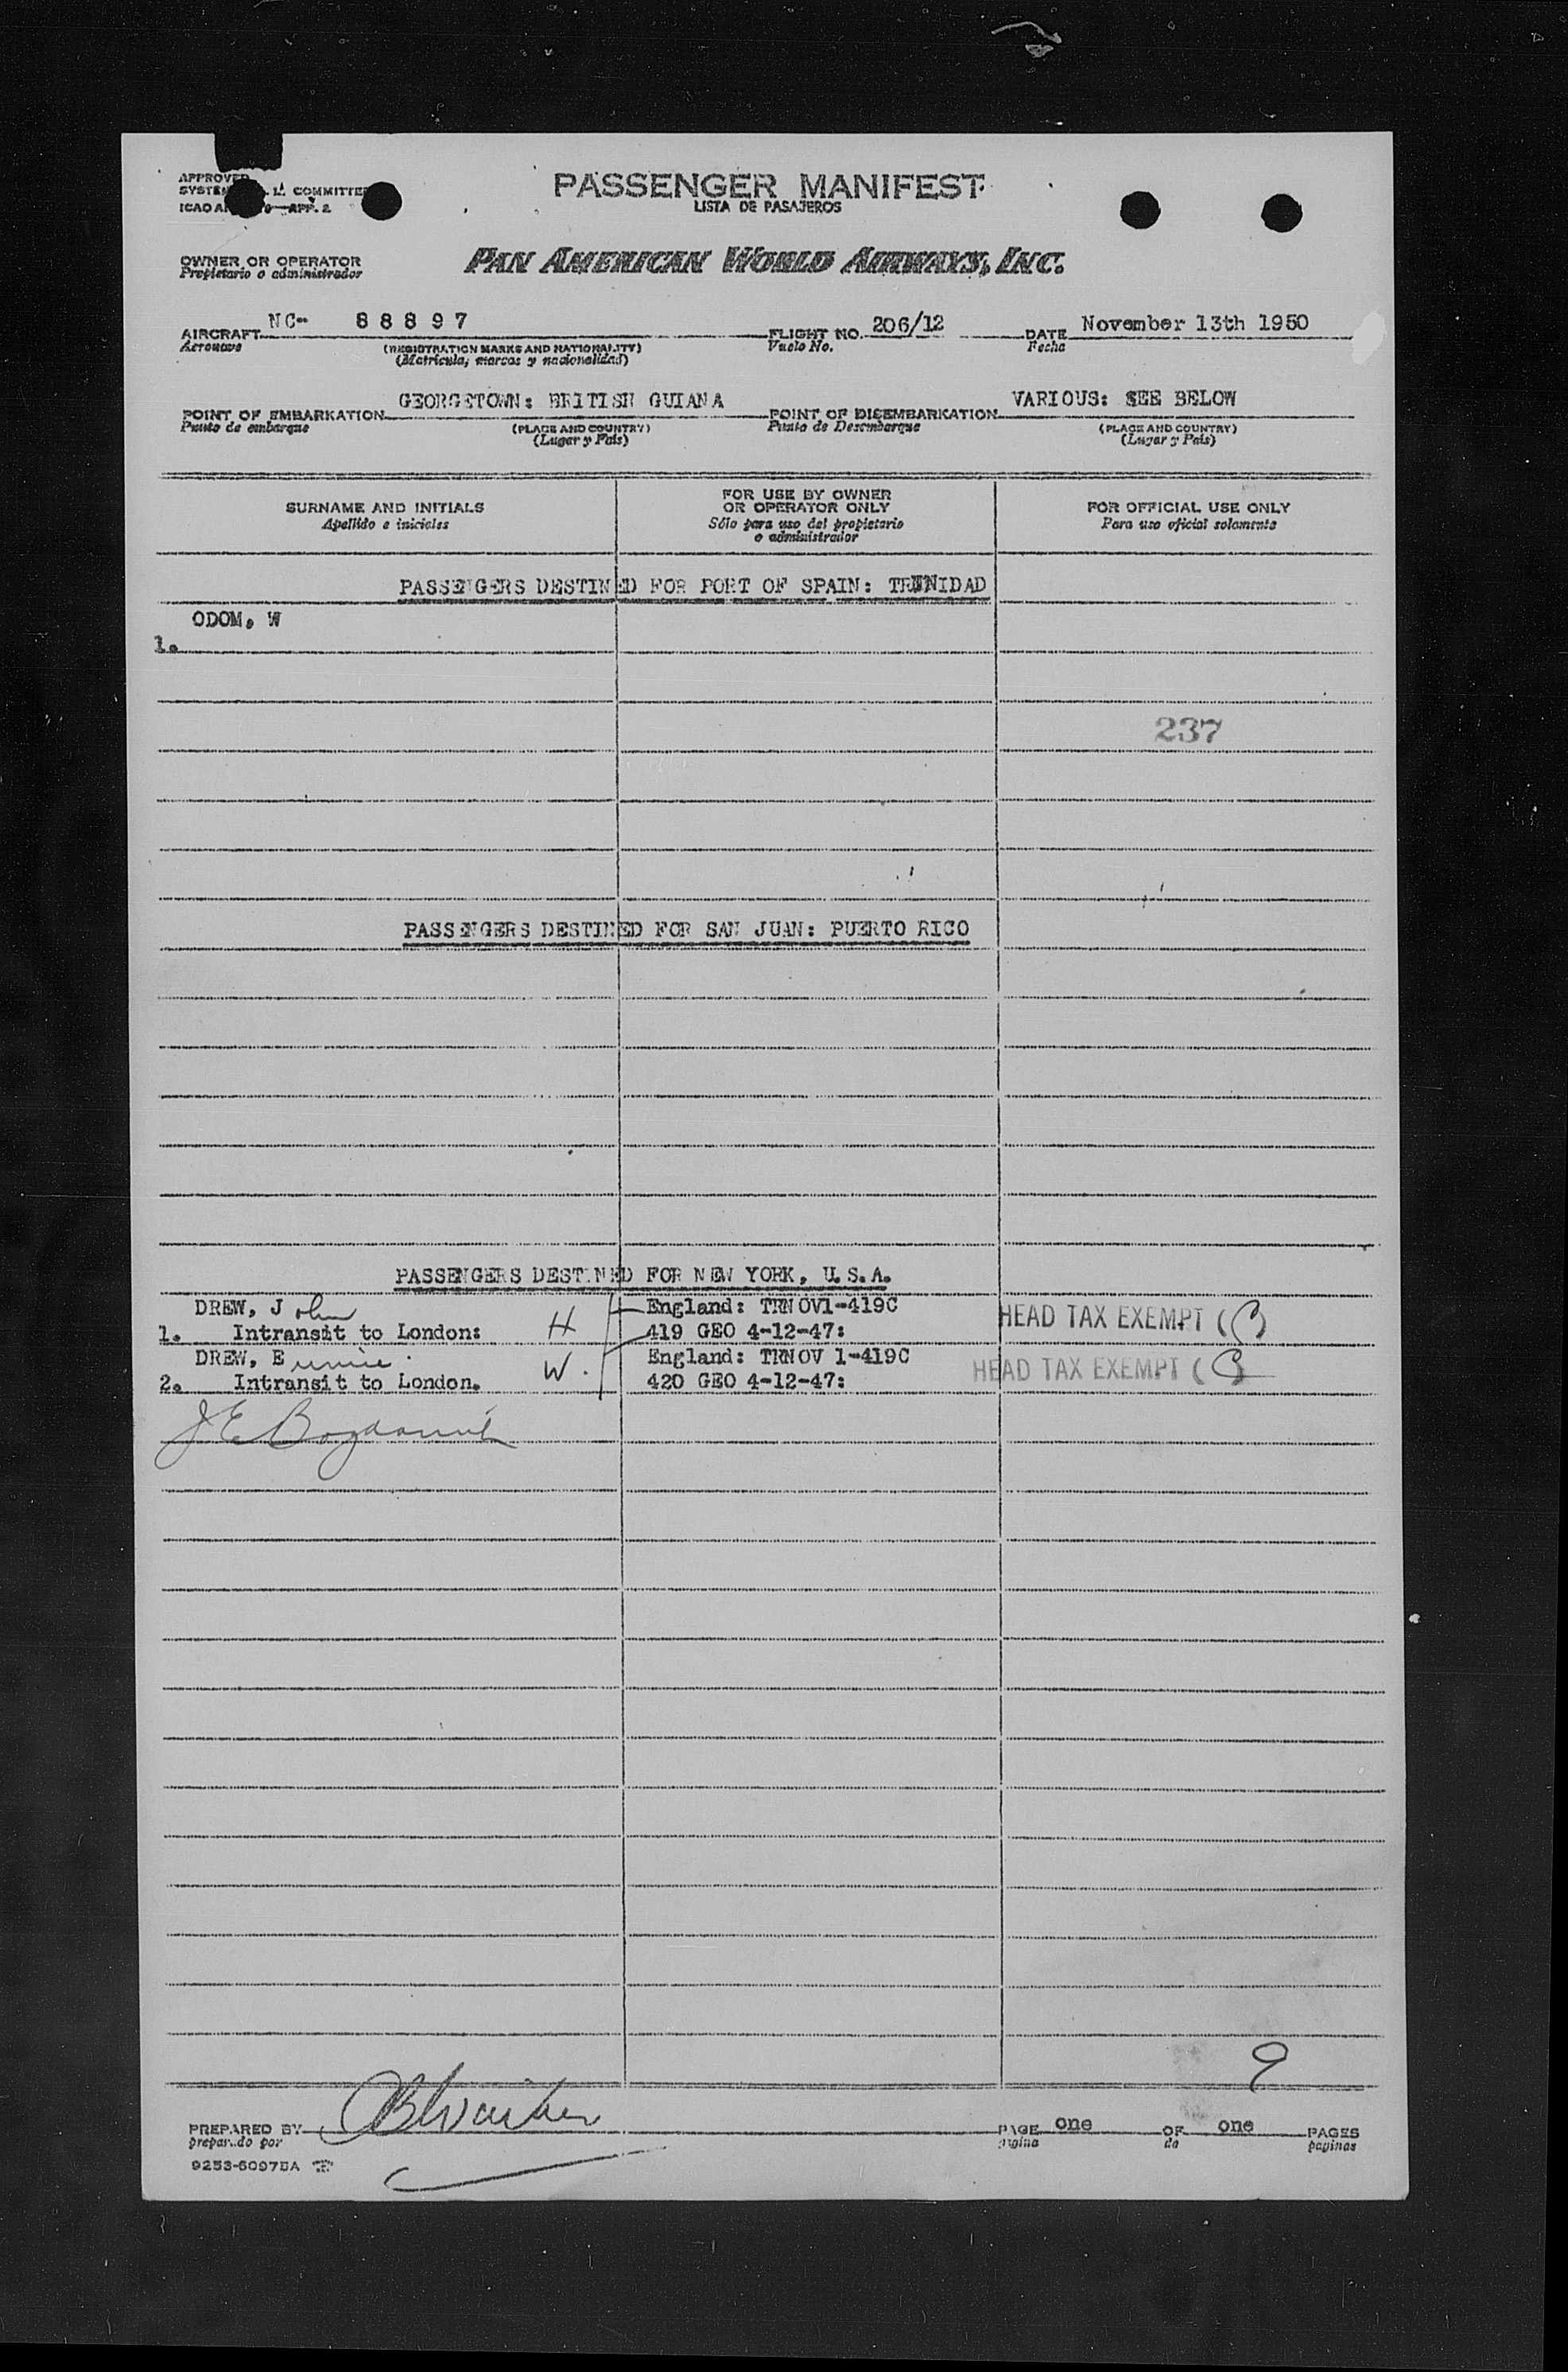 APPROVED
SYSTEM COMMITTEE
ICAO APP. 2
PASSENGER MANIFEST
LISTA DE PASAJEROS
OWNER OR OPERATOR
Propietario o administrador
PAN AMERICAN WORLD AIRWAYS, INC.
AIRCRAFT NC- 8 8 8 9 7 FLIGHT NO. 206/12 DATE November 13th 1950
Aeronave (REGISTRATION MARKS AND NATIONALITY) Vuelo No. Fecha
(Matrícula, marcas y nacionalidad)
POINT OF EMBARKATION GEORGETOWN: BRITISH GUIANA POINT OF DISEMBARKATION VARIOUS: SEE BELOW
Punto de embarque (PLACE AND COUNTRY) Punto de Desembarque (PLACE AND COUNTRY)
(Lugar y País) (Lugar y País)
SURNAME AND INITIALS FOR USE BY OWNER OR OPERATOR ONLY FOR OFFICIAL USE ONLY
Apellido e iniciales Sólo para uso del propietario o administrador Para uso oficial solamente
PASSENGERS DESTINED FOR PORT OF SPAIN: TRINIDAD
ODOM, W
1.
237
PASSENGERS DESTINED FOR SAN JUAN: PUERTO RICO
PASSENGERS DESTINED FOR NEW YORK, U.S.A.
DREW, John England: TRNOV1-419C
1. Intransit to London: H 419 GEO 4-12-47: HEAD TAX EXEMPT (
DREW, Eunice England: TRNOV 1-419C
2. Intransit to London. W. 420 GEO 4-12-47: HEAD TAX EXEMPT (
J E
9
PREPARED BY PAGE one OF one PAGES
preparado por página de páginas
9253-6097BA